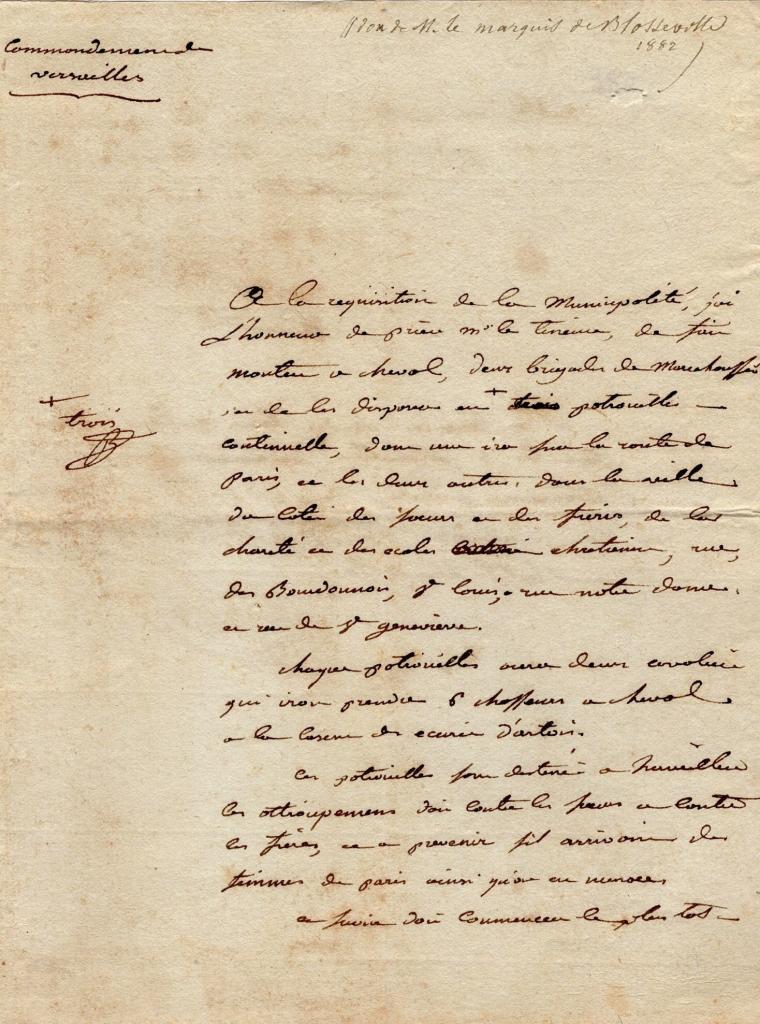 Don de M. le marquis de Blosseville
1882
Commandement de
versailles
A la requisition de la Municipalité, jai
L'honneur de prier mr le de faire
monter a cheval, deux brigades de Marechaussée
et de les disposer en + trois patrouilles
continuelle, dont une ira sur la route de
Paris, et les deux autres, dans la ville
du coté des sœurs et des freres, de la
charité et des ecoles chretienne, rue,
des Bourdonnois, st louis, rue notre dame,
et rue de st genevieve.
+
trois
chaque patrouilles aura deux cavaliers
qui iron prendre 6 chasseurs a cheval
a la caserne des ecurie d'artois.
ces patrouilles son destiné a surveiller
les attroupemens soit contre les sœurs et contre
les freres, et a prevenir sil arrivoit des
femmes de paris ainsi qu'on en menace,
ce service doit commencer le plus tot